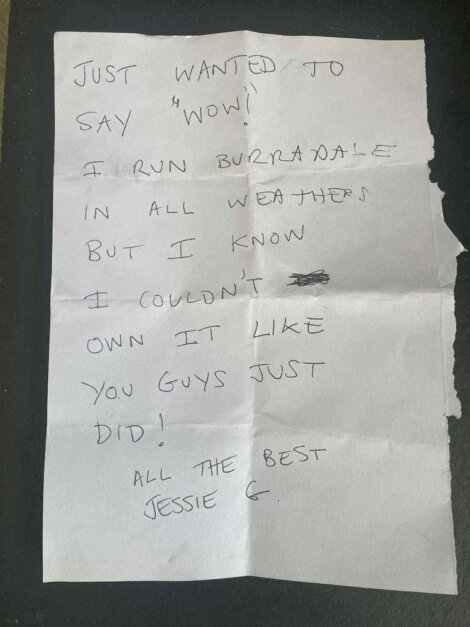 JUST WANTED TO
SAY "WOW!"
I RUN BURRADALE
IN ALL WEATHERS
BUT I KNOW
I COULDN'T
OWN IT LIKE
YOU GUYS JUST
DID!
ALL THE BEST
JESSIE G.